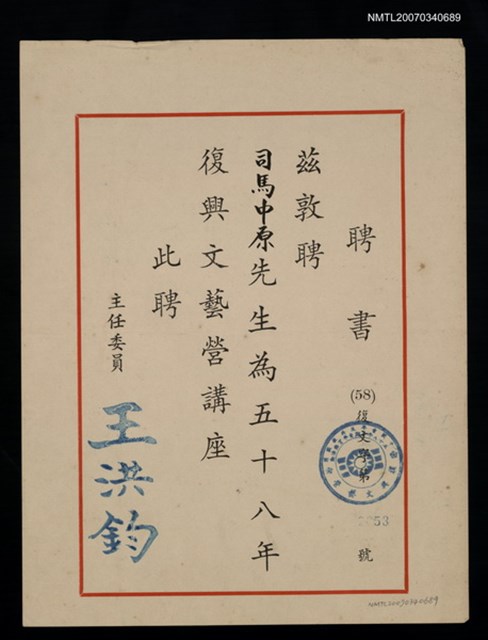 NMTL20070340689
聘書
(58)復文字第
053
號
茲敦聘
司馬中原先生為五十八年
復興文藝營講座
此聘
主任委員
王洪鈞
NMTL20070340689